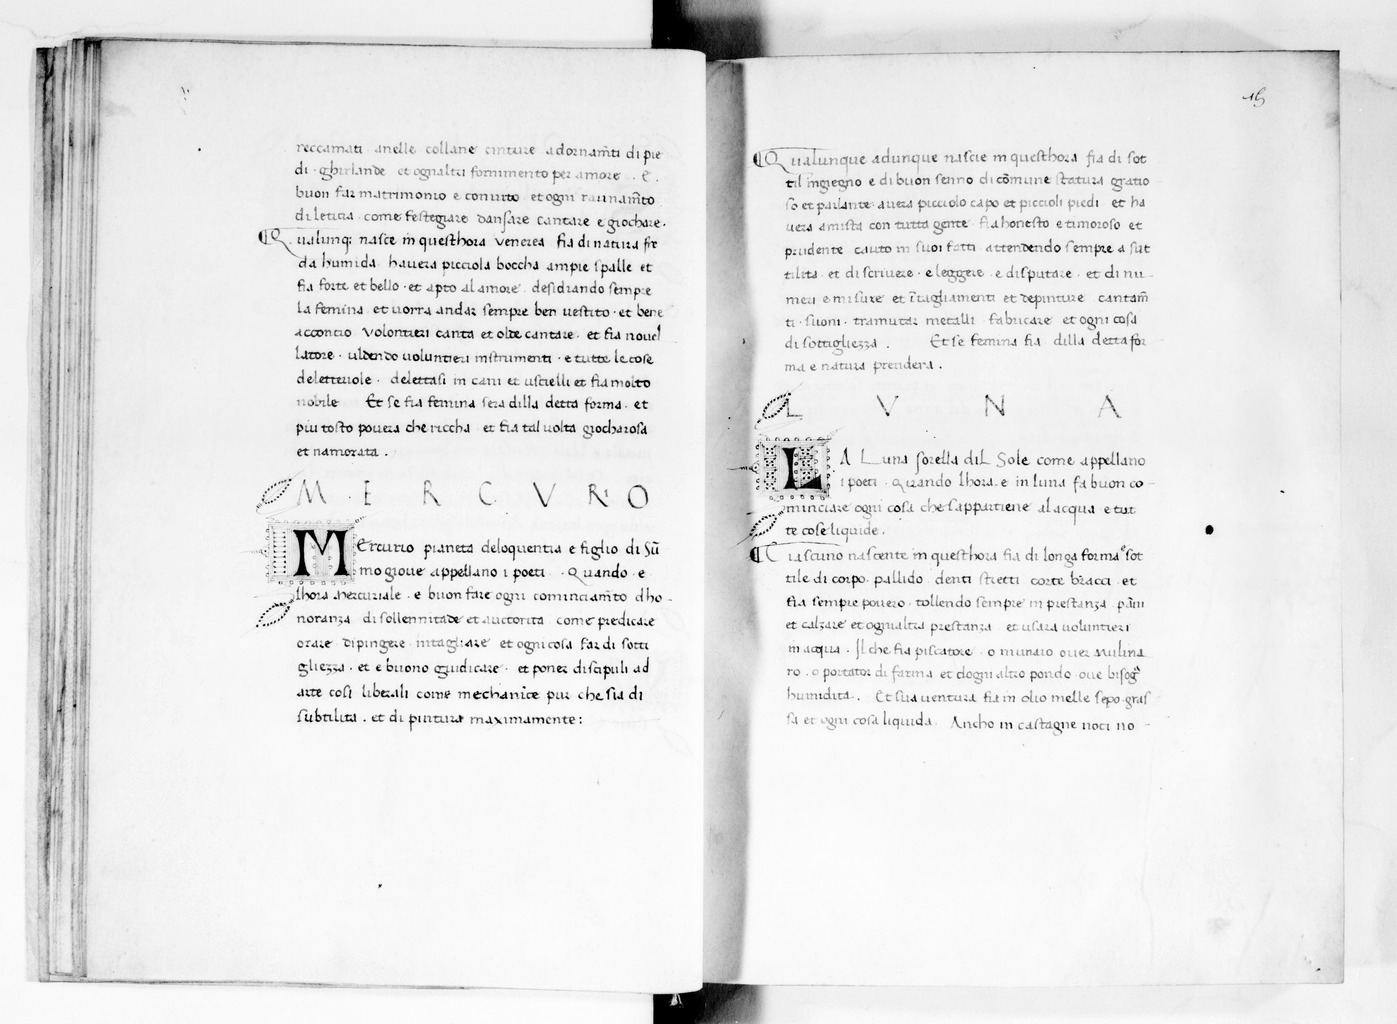 reccamati anelle collane cinture adornam̃ti di pie
di · ghirlande et ognaltri fornimento per amore · E ·
buon far matrimonio e conuito et ogni raunam̃to
di letitia come festegiare dansare cantare e giochare ·
Qualunq; nasce in questhora venerea fia di natura fre
da humida hauera picciola boccha ampie spalle et
fia forte et bello · et apto al amore desidrando sempre
la femina · et uorra andar sempre ben uestito · et bene
acconcio volontieri canta et olde cantare · et fia nouel
latore · uldendo uoluntieri instrumenti · e tutte le cose
deletteuole · delettasi in cani et uscielli et fia molto
nobile Et se fia femina sera dilla detta forma · et
piu tosto pouera che riccha et fia tal uolta giocharosa
et namorata .
M · E R C V R I O
MErcurio pianeta deloquentia e figlio di Sũ
mo gioue appellano i poeti . Quando · e
lhora Mercuriale · e buon fare ogni cominciam̃to dho
noranza di sollennitade et auctorita come predicare
orare dipingere intagliare et ogni cosa far di sotti
gliezza · et e buono giudicare · et poner discipuli ad
arte cosi liberali come mechanice pur che sia di
subtilita . et di pintura maximamente :
15
Qualunque adunque nascie in questhora fia di sot
til ingiegno e di buon senno di cōmune statura gratio
so et parlante auera picciolo capo et piccioli piedi et ha
uera amista con tutta gente fia honesto e timoroso et
prudente cauto in suoi fatti attendendo sempre a sut
tilita · et di scriuere · e leggere e disputare · et di nu
meri e misure et ītagliamenti et depinture cantam̃
ti · suoni · tramutar metalli fabricare et ogni cosa
di sottigliezza . Et se femina fia dilla detta for
ma e natura prendera .
L V N A
LA Luna sorella diL Sole come appellano
i poeti · Quando lhora · e in luna fa buon co
minciare ogni cosa che sappartiene al acqua e tut
te cose liquide .
Ciascuno nascente in questhora fia di longa forma e sot
tile di corpo pallido denti stretti corte bracci et
fia sempre pouero · tollendo sempre in prestanza pāni
et calzare et ognialtra prestanza et usara uoluntieri
in acqua . Il che fia piscatore · o munaio ouer Mulina
ro . o portator di farina et dogni altro pondo · oue bisogna
humidita . Et sua uentura fia in olio melle sepo · gras
sa et ogni cosa liquida . Ancho in castagne noci no